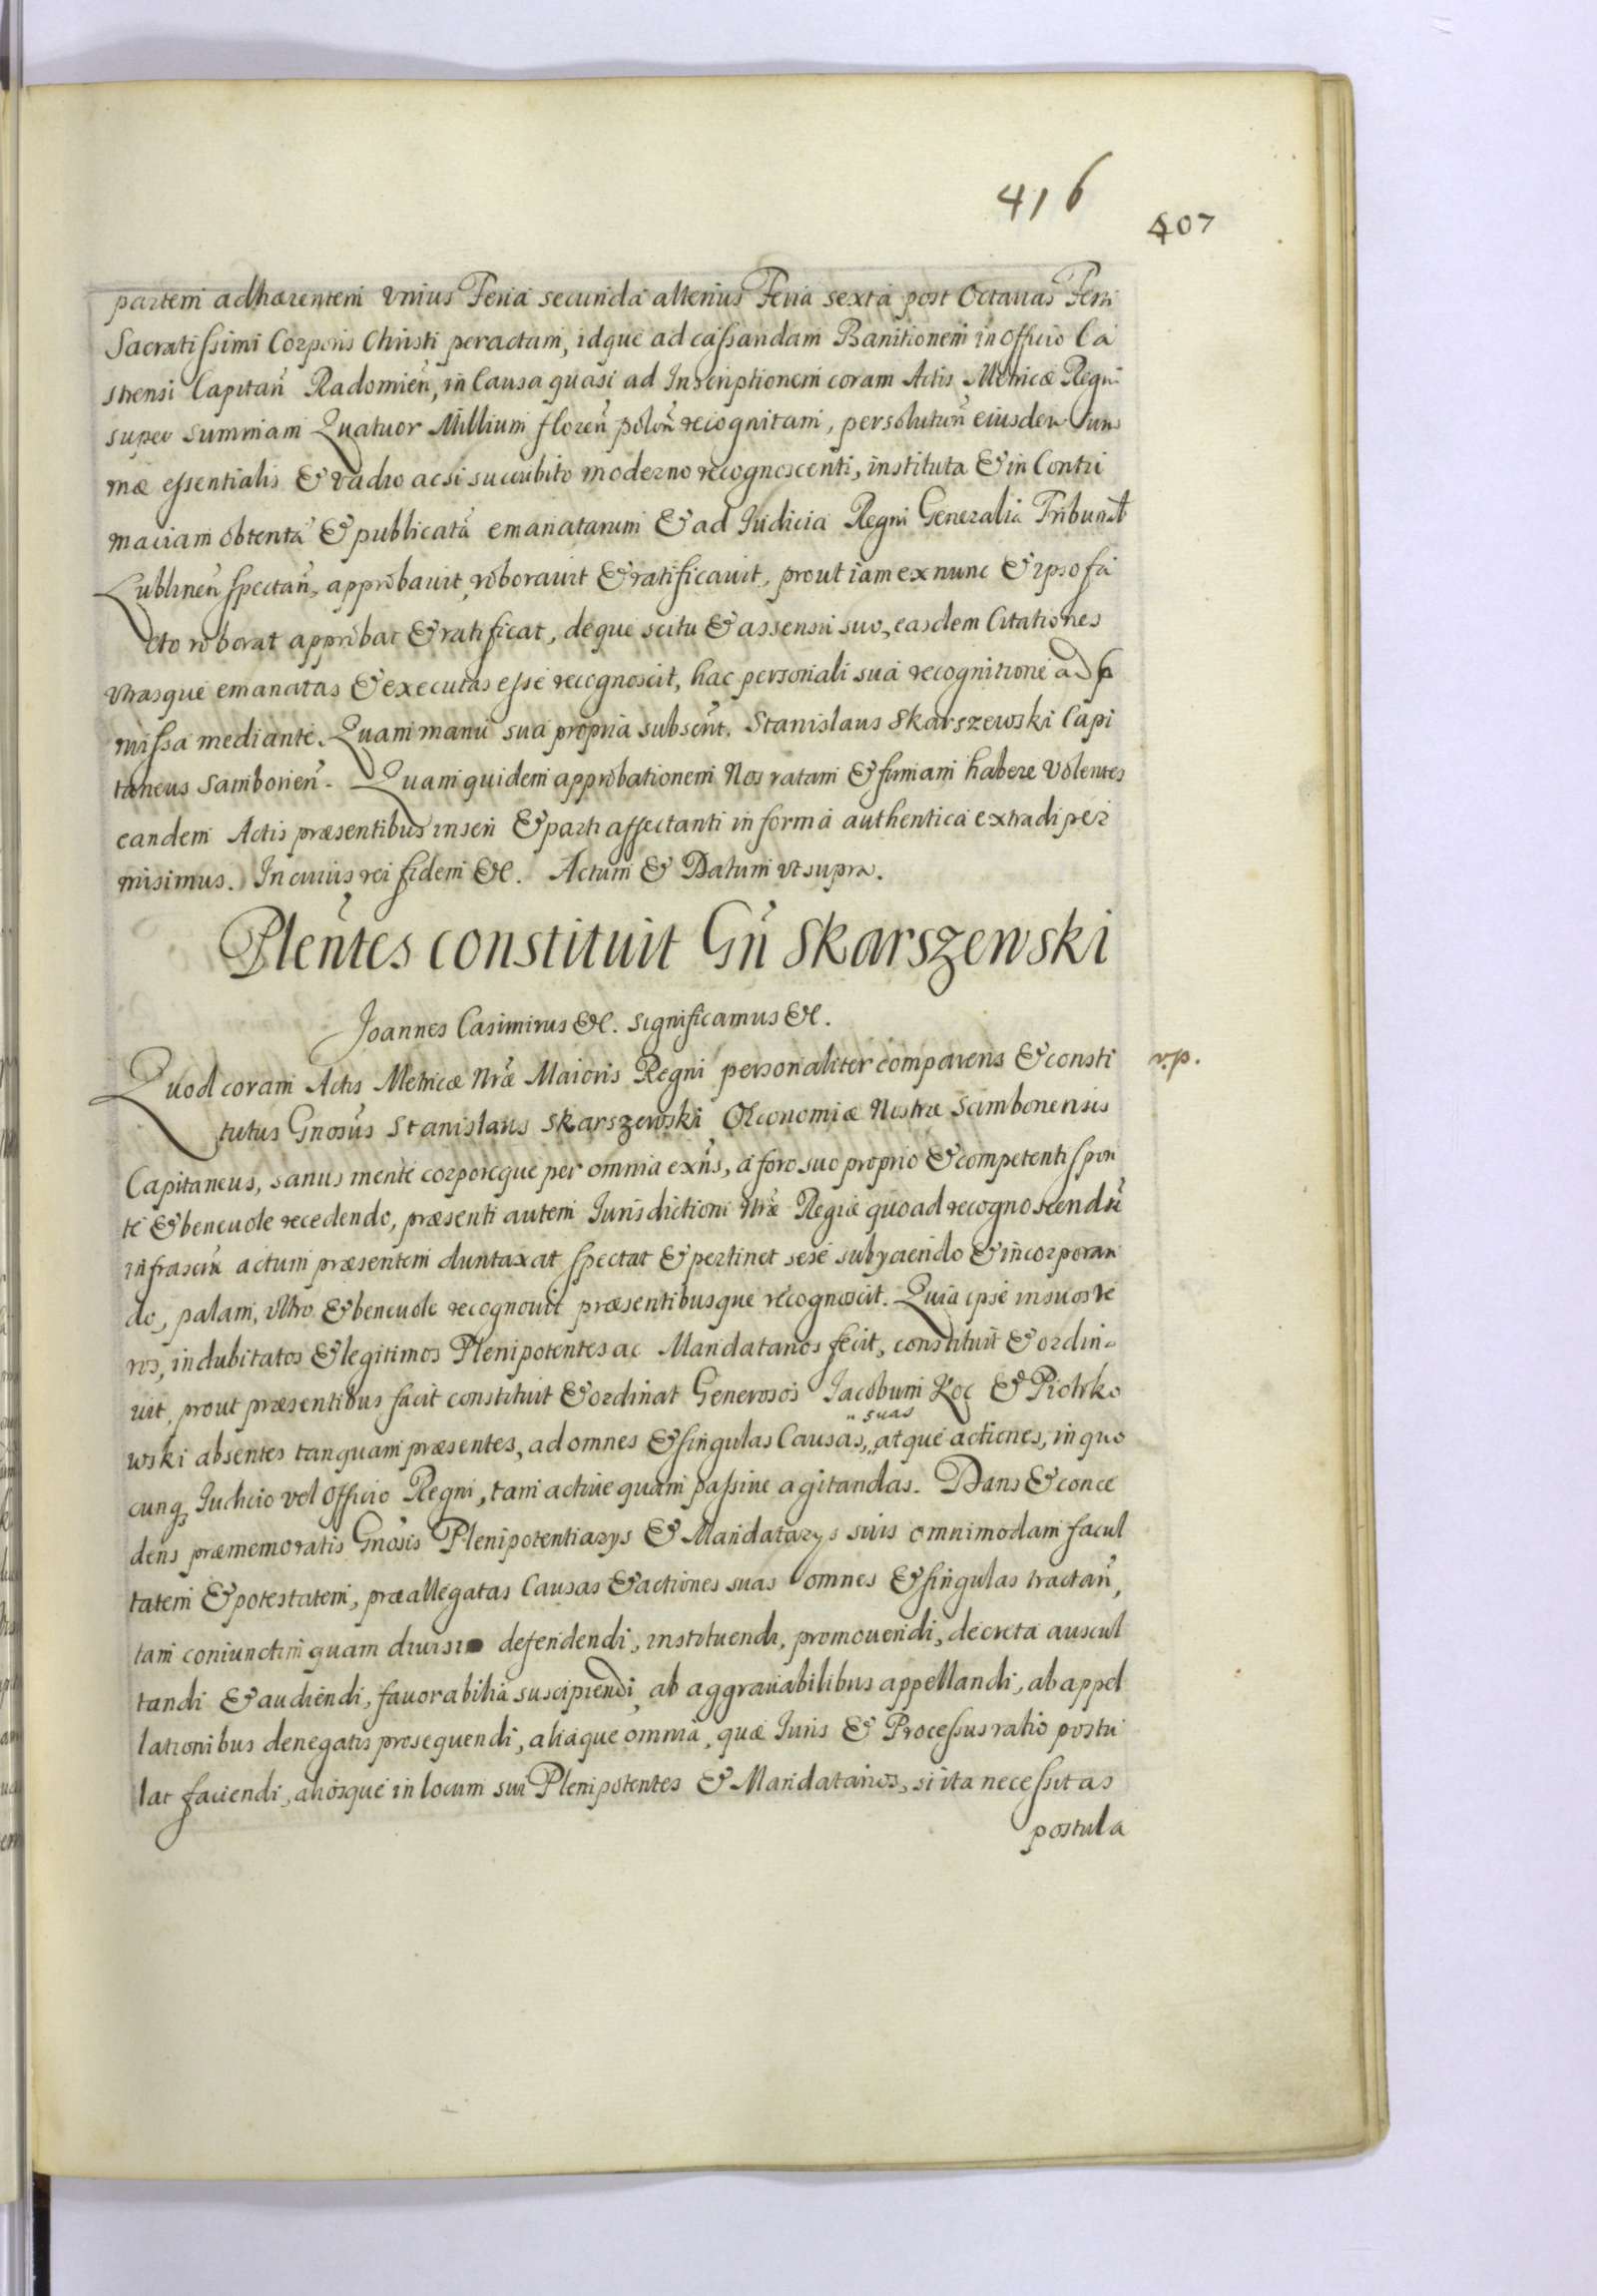 416
407
partem adhærentem vnius Feria secunda alterius Feria sexta post Octauas Festi
Sacratissimi Corporis Christi peractam, idque ad cassandam Banitionem in Officio Ca
strensi Capitan̄ Radomien̄, in Causa quasi ad Inscriptionem coram Actis Metricæ Regni
super summam Quatuor Millium floren̄ polon̄ recognitam, persolution̄ eiusdem sum
mæ essentialis & vadio ac si succubito moderno recognoscenti, instituta & in Contu
maciam obtentâ & publicatâ emanatarum & ad Iudicia Regni Generalia Tribunal
Lublinen̄ spectan̄, approbauit, roborauit & ratificauit, prout iam ex nunc & ipso fa
cto roborat approbat & ratificat, deque scitu & assensu suo, easdem Citationes
vtrasque emanatas & executas esse recognoscit, hac personali sua recognitione ad p
missa mediante. Quam manu sua propria subscrt. Stanislaus Skarszewski Capi
taneus Samborien̄. Quam quidem approbationem Nos ratam & firmam habere volentes
eandem Actis præsentibus inseri & parti affectanti in forma authentica extradi per
misimus. In cuius rei fidem &c. Actum & Datum vt supra.
Plen̄tes constituit Gn̄ Skarszewski
Joannes Casimirus &c. significamus &c.
Quod coram Actis Metricæ Nræ Maioris Regni personaliter comparens & consti
v.p.
tutus Gnosus Stanislaus Skarszewski Oeconomiæ Nostræ Samboriensis
Capitaneus, sanus mente corporeque per omnia exn̄s, à foro suo proprio & competenti spon
te & beneuole recedendo, præsenti autem Iurisdictioni Nræ Regiæ quoad recognoscendu
infrascru actum præsentem duntaxat spectat & pertinet sese subyciendo & incorporan
do, palam, vltro & beneuole recognouit præsentibusque recognoscit. Quia ipse in suos ve
ros, indubitatos & legitimos Plenipotentes ac Mandatarios fecit, constituit & ordin-
uit, prout præsentibus facit constituit & ordinat Generosos Iacobum Koc & Piotrko
wski absentes tanquam præsentes, ad omnes & singulas Causas, "suas atque actiones, in quo
cunq Iudicio vel Officio Regni, tam actiue quam passiue agitandas. Dans & conce
dens præmemoratis Gnosis Plenipotentiarys & Mandatarys suis omnimodam facul
tatem & potestatem, præallegatas Causas & actiones suas omnes & singulas tractan̄,
tam coniunctim quam diuisi defendendi, instituendi, promouendi, decreta auscul
tandi & audiendi, fauorabilia suscipiendi, ab aggrauabilibus appellandi, ab appel
lationibus denegatis prosequendi, aliaque omnia, quæ Iuris & Processus ratio postu
lat faciendi, aliosque in locum sui Plenipotentes & Mandatarios, si ita necessitas
postula